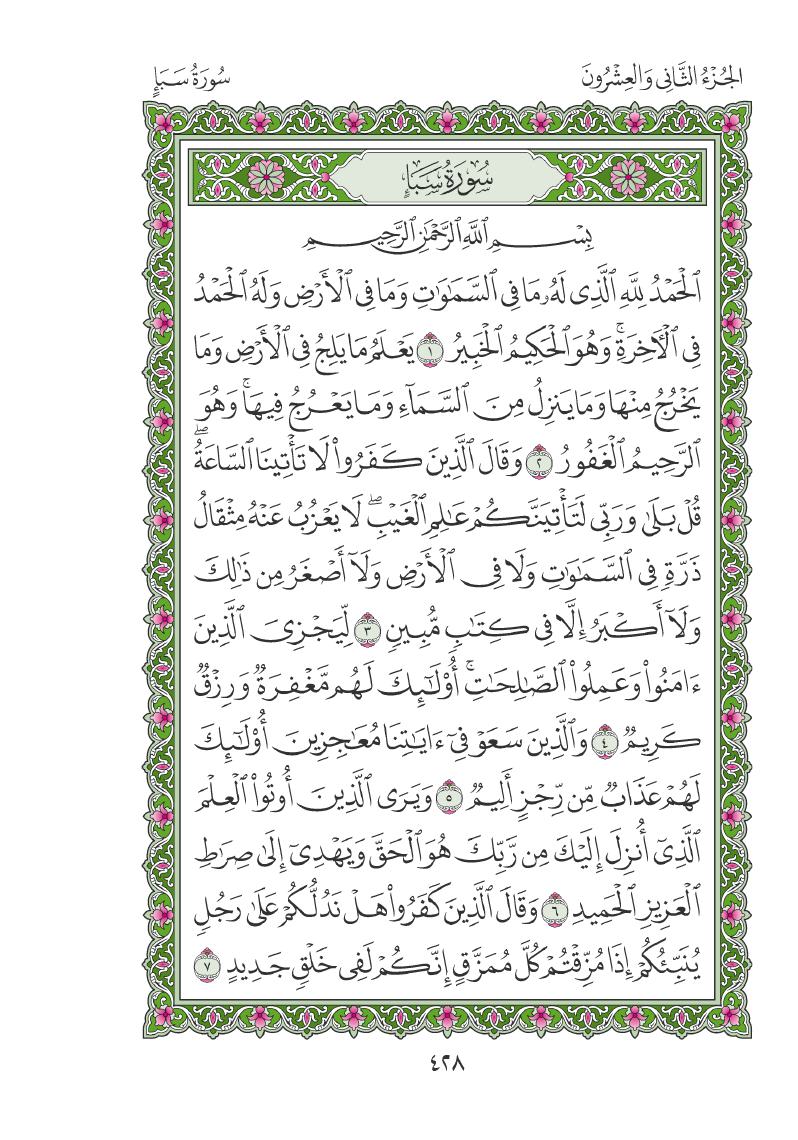 الجُزْءُ الثَّانِي وَالعِشْرُونَ
سُورَةُ سَبَإٍ
سُورَةُ سَبَإٍ
بِسْمِ ٱللَّهِ ٱلرَّحْمَٰنِ ٱلرَّحِيمِ
ٱلْحَمْدُ لِلَّهِ ٱلَّذِى لَهُۥ مَا فِى ٱلسَّمَٰوَٰتِ وَمَا فِى ٱلْأَرْضِ وَلَهُ ٱلْحَمْدُ
فِى ٱلْءَاخِرَةِۚ وَهُوَ ٱلْحَكِيمُ ٱلْخَبِيرُ ١ يَعْلَمُ مَا يَلِجُ فِى ٱلْأَرْضِ وَمَا
يَخْرُجُ مِنْهَا وَمَا يَنزِلُ مِنَ ٱلسَّمَآءِ وَمَا يَعْرُجُ فِيهَاۚ وَهُوَ
ٱلرَّحِيمُ ٱلْغَفُورُ ٢ وَقَالَ ٱلَّذِينَ كَفَرُوا۟ لَا تَأْتِينَا ٱلسَّاعَةُۖ
قُلْ بَلَىٰ وَرَبِّى لَتَأْتِيَنَّكُمْ عَٰلِمِ ٱلْغَيْبِۖ لَا يَعْزُبُ عَنْهُ مِثْقَالُ
ذَرَّةٍ فِى ٱلسَّمَٰوَٰتِ وَلَا فِى ٱلْأَرْضِ وَلَآ أَصْغَرُ مِن ذَٰلِكَ
وَلَآ أَكْبَرُ إِلَّا فِى كِتَٰبٍ مُّبِينٍ ٣ لِّيَجْزِىَ ٱلَّذِينَ
ءَامَنُوا۟ وَعَمِلُوا۟ ٱلصَّٰلِحَٰتِۚ أُو۟لَٰٓئِكَ لَهُم مَّغْفِرَةٌ وَرِزْقٌ
كَرِيمٌ ٤ وَٱلَّذِينَ سَعَوْ فِىٓ ءَايَٰتِنَا مُعَٰجِزِينَ أُو۟لَٰٓئِكَ
لَهُمْ عَذَابٌ مِّن رِّجْزٍ أَلِيمٌ ٥ وَيَرَى ٱلَّذِينَ أُوتُوا۟ ٱلْعِلْمَ
ٱلَّذِىٓ أُنزِلَ إِلَيْكَ مِن رَّبِّكَ هُوَ ٱلْحَقَّ وَيَهْدِىٓ إِلَىٰ صِرَٰطِ
ٱلْعَزِيزِ ٱلْحَمِيدِ ٦ وَقَالَ ٱلَّذِينَ كَفَرُوا۟ هَلْ نَدُلُّكُمْ عَلَىٰ رَجُلٍ
يُنَبِّئُكُمْ إِذَا مُزِّقْتُمْ كُلَّ مُمَزَّقٍ إِنَّكُمْ لَفِى خَلْقٍ جَدِيدٍ ٧
٤٢٨